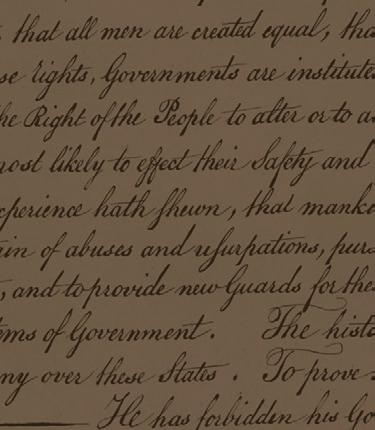 that all men are created equal, tha
se rights, Governments are institute
he Right of the People to alter or to a
most likely to effect their Safety and
xperience hath shewn, that manki
ain of abuses and usurpations, purs
, and to provide new Guards for the
tems of Government. The histo
ny over these States. To prove
He has forbidden his Go